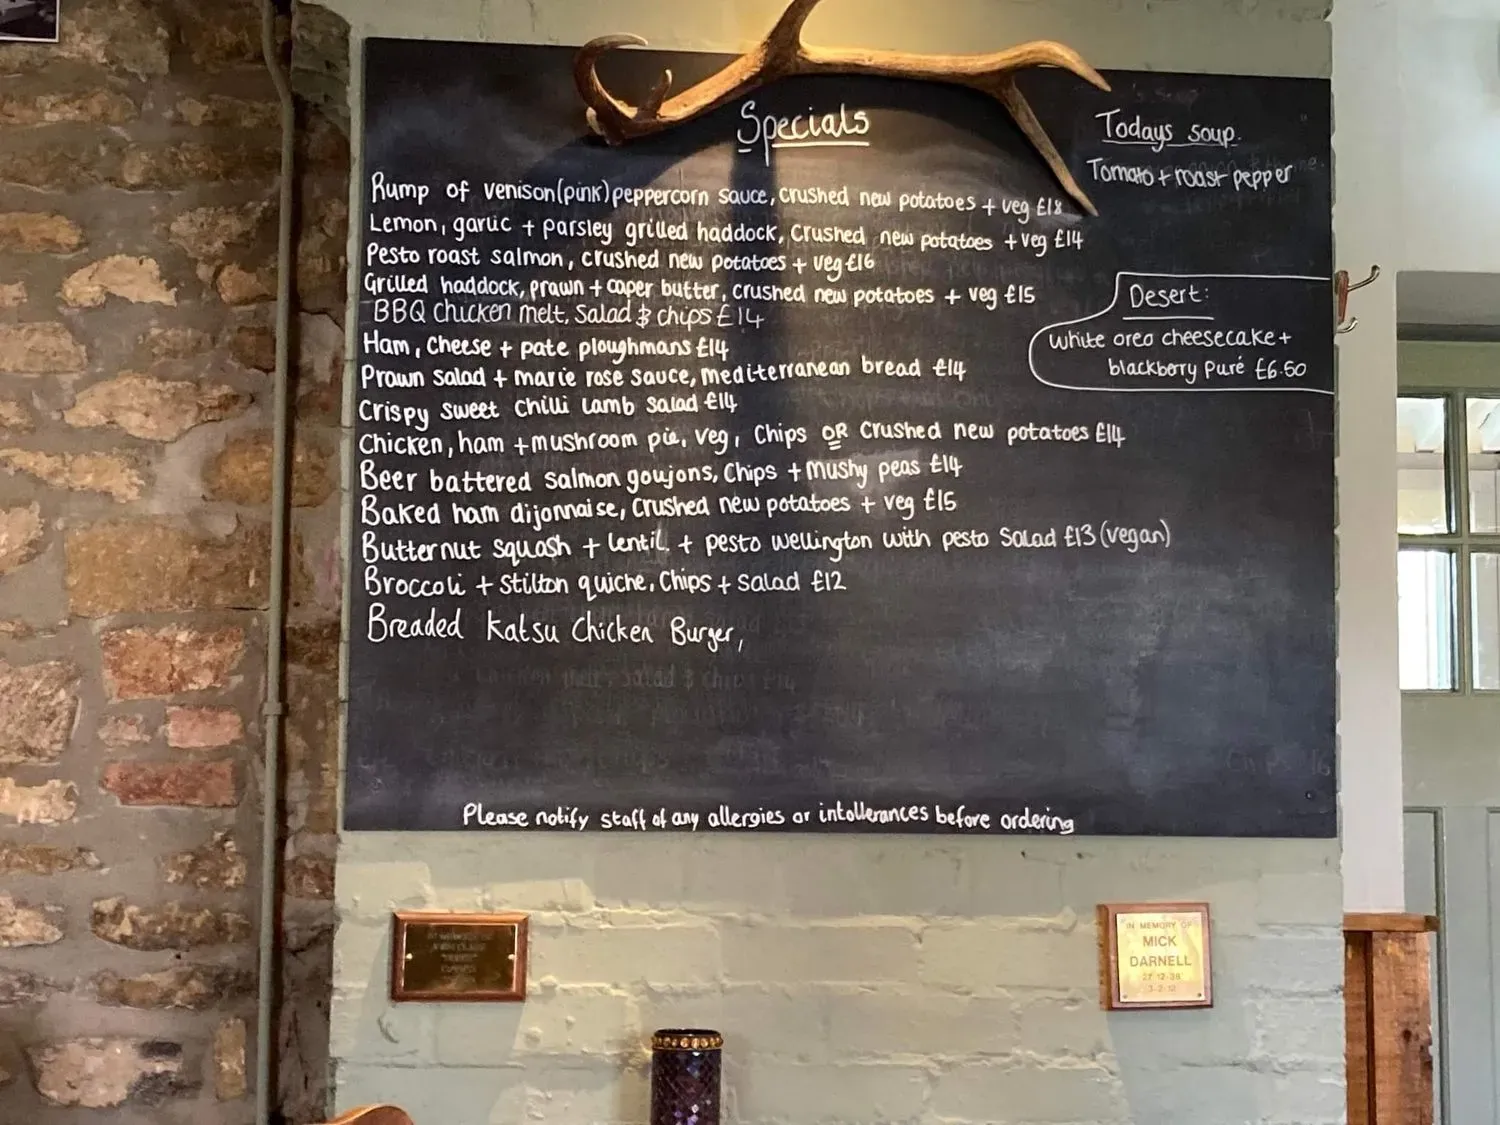 Specials
Rump of venison(pink)peppercorn sauce, crushed new potatoes + veg £18
Lemon, garlic + parsley grilled haddock, crushed new potatoes + veg £14
Pesto roast salmon, crushed new potatoes + veg £16
Grilled haddock, prawn + caper butter, crushed new potatoes + veg £15
BBQ Chicken melt, salad & chips £14
Ham, cheese + pate ploughmans £14
Prawn salad + marie rose sauce, mediterranean bread £14
Crispy sweet chilli lamb salad £14
Chicken, ham + mushroom pie, veg, chips OR crushed new potatoes £14
Beer battered salmon goujons, chips + mushy peas £14
Baked ham dijonnaise, crushed new potatoes + veg £15
Butternut squash + lentil + pesto wellington with pesto salad £13 (vegan)
Broccoli + stilton quiche, chips + salad £12
Breaded Katsu Chicken Burger,
Todays soup.
Tomato + roast pepper
Desert:
white oreo cheesecake +
blackberry puré £6.50
Please notify staff of any allergies or intollerances before ordering
IN MEMORY OF
MICK
DARNELL
27·12·38
3·2·12